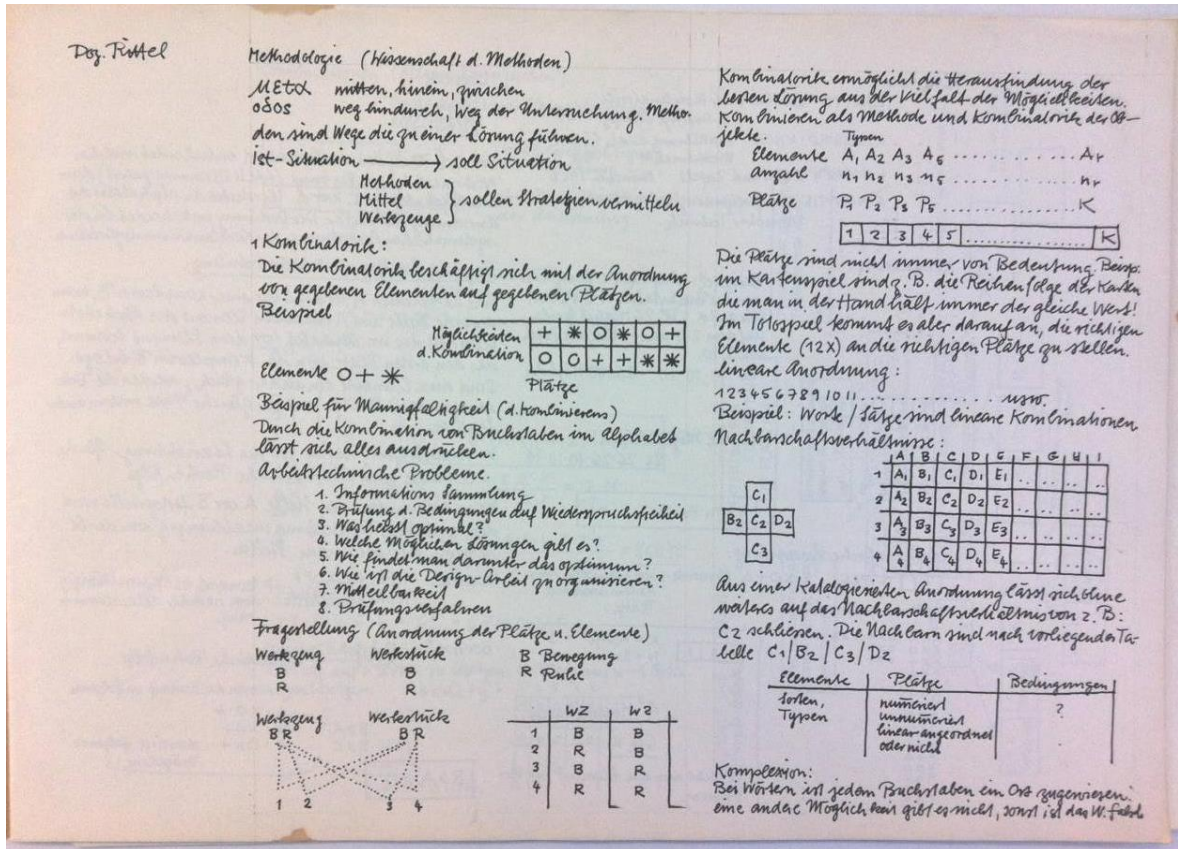 Doz. Rittel
Methodologie (Wissenschaft d. Methoden)
μετα mitten, hinein, zwischen
οδος weg hindurch, Weg der Untersuchung. Metho-
den sind Wege die zu einer Lösung führen.
ist-Situation ⟶ soll Situation
Methoden
Mittel } sollen Strategien vermitteln
Werkzeuge
1 Kombinatorik:
Die Kombinatorik beschäftigt sich mit der Anordnung
von gegebenen Elementen auf gegebenen Plätzen.
Beispiel
Möglichkeiten + * O * O +
d. Kombination O O + + * *
Elemente O + *
Plätze
Beispiel für Mannigfaltigkeit (d. Kombinierens)
Durch die Kombination von Buchstaben im Alphabet
lässt sich alles ausdrücken.
Arbeitstechnische Probleme.
1. Informations Sammlung
2. Prüfung d. Bedingungen auf Wiederspruchsfreiheit
3. Was heisst optimal?
4. Welche Möglichen Lösungen gibt es?
5. Wie findet man darunter das optimum?
6. Wie ist die Design-Arbeit zu organisieren?
7. Mitteilbarkeit
8. Prüfungsverfahren
Fragestellung (Anordnung der Plätze u. Elemente)
Werkzeug Werkstück B Bewegung
B B R Ruhe
R R
Werkzeug Werkstück
B R B R
1 2 3 4
WZ WS
1 B B
2 R B
3 B R
4 R R
Kombinatorik ermöglicht die Herausfindung der
besten Lösung aus der Vielfalt der Möglichkeiten.
Kombinieren als Methode und Kombinatorik der Ob-
jekte. Typen
Elemente A1 A2 A3 A5 .......... Ar
anzahl n1 n2 n3 n5 .......... nr
Plätze P1 P2 P3 P5 .......... K
1 2 3 4 5 .......... K
Die Plätze sind nicht immer von Bedeutung. Beisp.
im Kartenspiel sind z. B. die Reihenfolge der Karten
die man in der Hand hält immer der gleiche Wert!
Im Totospiel kommt es aber darauf an, die richtigen
Elemente (12x) an die richtigen Plätze zu stellen.
lineare Anordnung:
1 2 3 4 5 6 7 8 9 10 11 .......... usw.
Beispiel: Worte / Sätze sind lineare Kombinationen
Nachbarschaftsverhältnisse:
A B C D E F G H I
1 A1 B1 C1 D1 E1 .. .. .. ..
2 A2 B2 C2 D2 E2 .. .. .. ..
3 A3 B3 C3 D3 E3 .. .. .. ..
4 A4 B4 C4 D4 E4 .. .. .. ..
C1
B2 C2 D2
C3
Aus einer Katalogisierten Anordnung lässt sich ohne
weiteres auf das Nachbarschaftsverhältnis von z. B:
C2 schliessen. Die Nachbarn sind nach vorliegender Ta-
belle C1/B2/C3/D2
Elemente Plätze Bedingungen
Sorten, numeriert ?
Typen unnumeriert
linear angeordnet
oder nicht
Komplexion:
Bei Wörtern ist jedem Buchstaben ein Ort zugewiesen.
eine andere Möglichkeit gibt es nicht, sonst ist das W. falsch